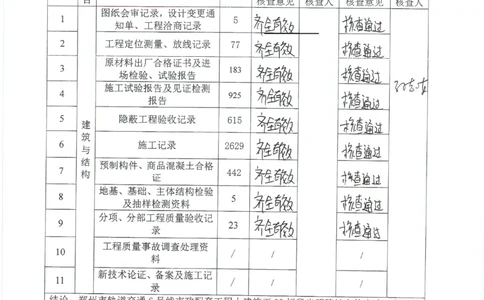 目 核查意见 核查人 核查意见 核查人
1 图纸会审记录，设计变更通知单、工程洽商记录 5 齐全有效 核查通过
2 工程定位测量、放线记录 77 齐全有效 核查通过
3 原材料出厂合格证书及进场检验、试验报告 183 齐全有效 核查通过
4 施工试验报告及见证检测报告 925 齐全有效 核查通过
5 隐蔽工程验收记录 615 齐全有效 核查通过
6 施工记录 2629 齐全有效 核查通过
7 预制构件、商品混凝土合格证 442 齐全有效 核查通过
8 地基、基础、主体结构检验及抽样检测资料 5 齐全有效 核查通过
9 分项、分部工程质量验收记录 23 齐全有效 核查通过
10 工程质量事故调查处理资料 / / /
11 新技术论证、备案及施工记录 / / /
建筑与结构